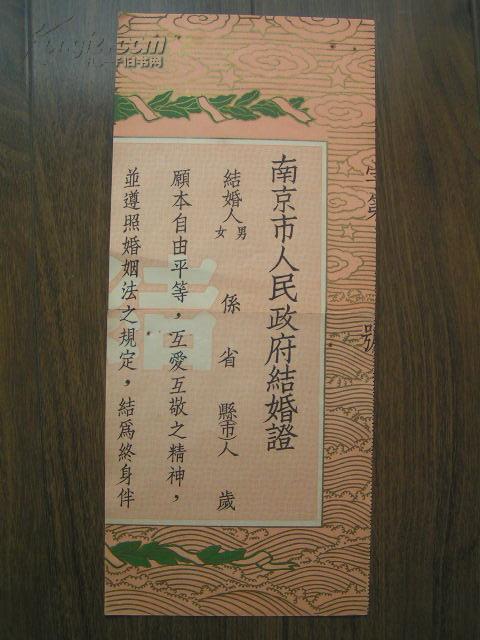 字第　號
南京市人民政府結婚證
結婚人男女　係　省　縣市人　歲
願本自由平等，互愛互敬之精神，
並遵照婚姻法之規定，結爲終身伴
结
kongfz.com
孔夫子旧书网